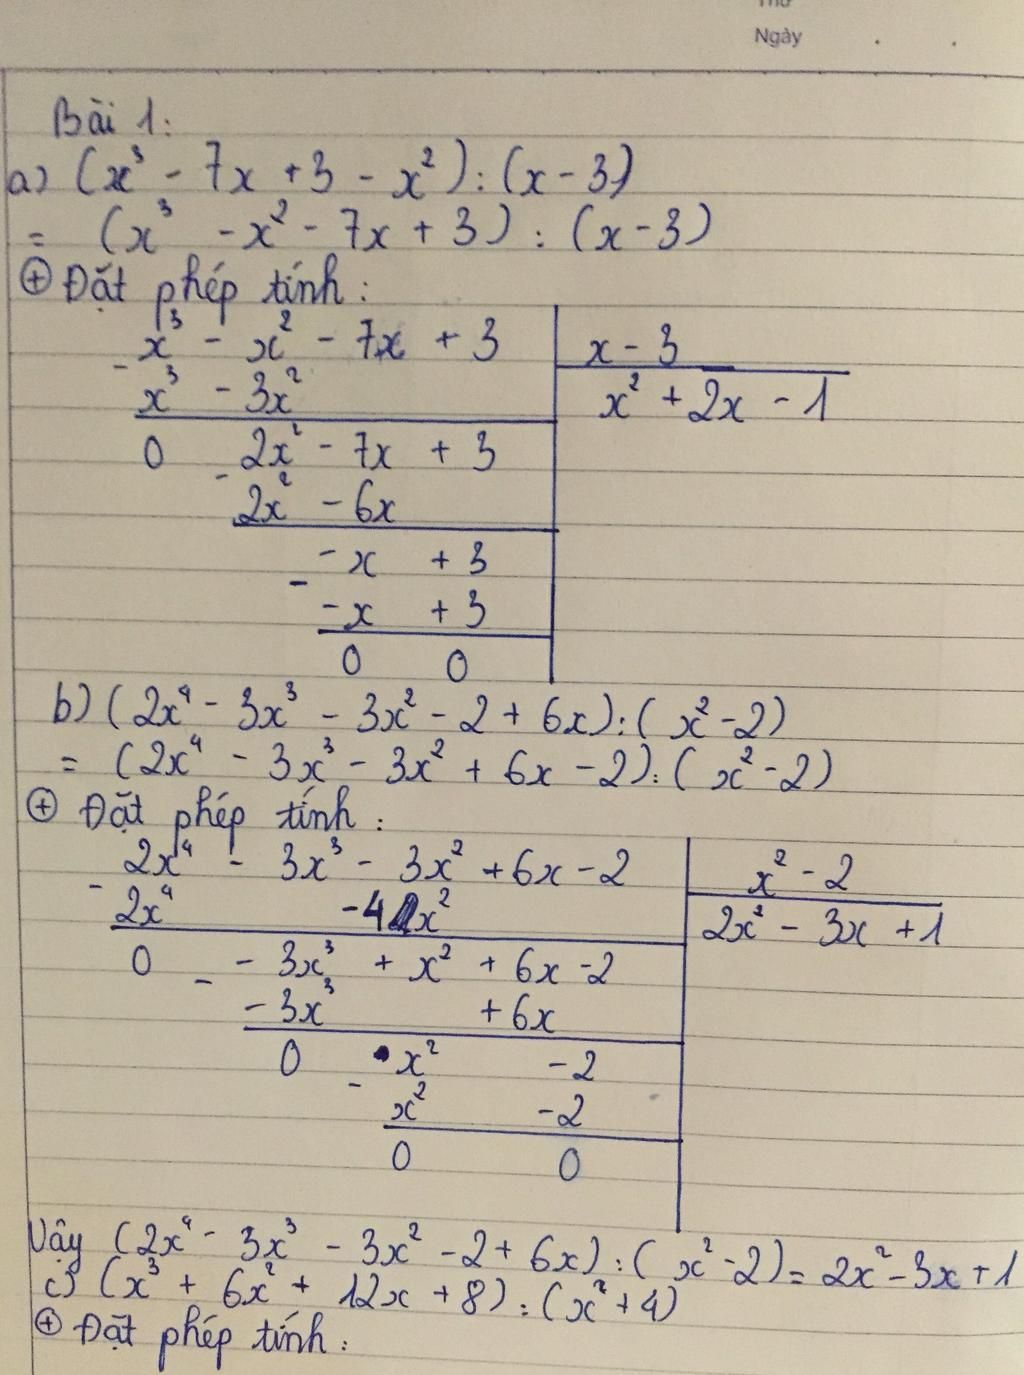 Thứ
Ngày
Bài 1:
a) (x³ - 7x + 3 - x²) : (x - 3)
= (x³ - x² - 7x + 3) : (x - 3)
⊕ Đặt phép tính :
x³ - x² - 7x + 3 | x - 3
- x³ - 3x² | x² + 2x - 1
0 2x² - 7x + 3
- 2x² - 6x
-x + 3
- -x + 3
0 0
b) (2x⁴ - 3x³ - 3x² - 2 + 6x) : (x² - 2)
= (2x⁴ - 3x³ - 3x² + 6x - 2) : (x² - 2)
⊕ Đặt phép tính :
2x⁴ - 3x³ - 3x² + 6x - 2 | x² - 2
- 2x⁴ - 4x² | 2x² - 3x + 1
0 - 3x³ + x² + 6x - 2
- - 3x³ + 6x
0 x² - 2
- x² - 2
0 0
Vậy (2x⁴ - 3x³ - 3x² - 2 + 6x) : (x² - 2) = 2x² - 3x + 1
c) (x³ + 6x² + 12x + 8) : (x² + 4)
⊕ Đặt phép tính :